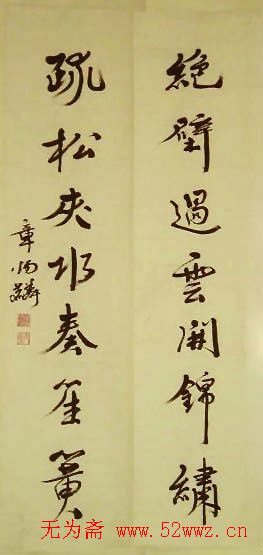 絶壁過雲開錦繡
疏松夾水奏笙簧
章炳麟
无为斋 www.52wwz.cn